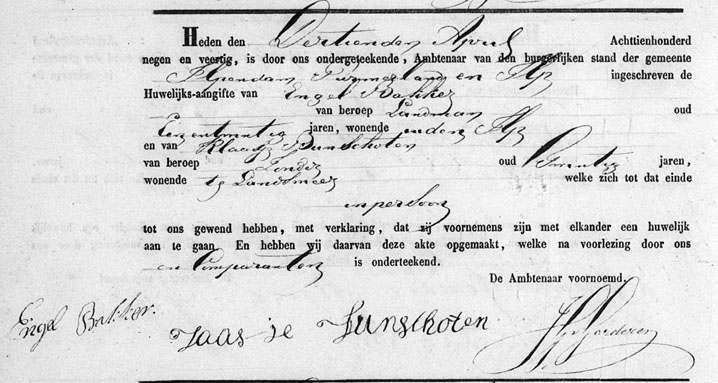 Heden den Dertienden April Achttienhonderd
negen en veertig, is door ons ondergeteekende, Ambtenaar van den burgerlijken stand der gemeente
Ilpendam Purmerland en Ilp ingeschreven de
Huwelijks-aangifte van Engel Bakker
van beroep Landman oud
Een en twintig jaren, wonende in den Ilp
en van Klaasje Bunschoten
van beroep Zonder oud Twintig jaren,
wonende te Landsmeer welke zich tot dat einde
in persoon
tot ons gewend hebben, met verklaring, dat zij voornemens zijn met elkander een huwelijk
aan te gaan. En hebben wij daarvan deze akte opgemaakt, welke na voorlezing door ons
en Comparanten is onderteekend.
De Ambtenaar voornoemd.
Engel Bakker. Jaas je Bunschoten